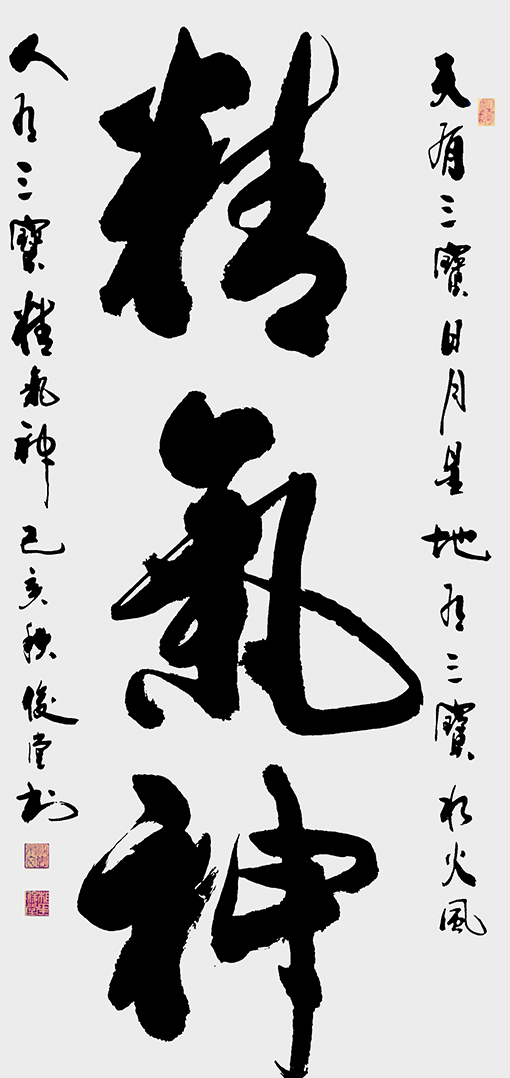 天有三寶日月星地有三寶水火風
精氣神
人有三寶精氣神己亥秋俊堂